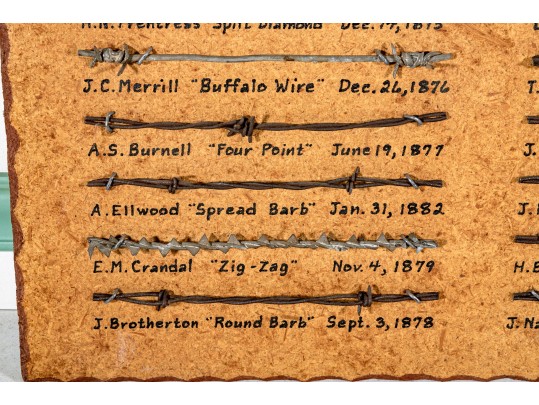 "Split Diamond" Dec. 17, 1875
J.C. Merrill "Buffalo Wire" Dec. 26, 1876
T.
A.S. Burnell "Four Point" June 19, 1877
J.
A. Ellwood "Spread Barb" Jan. 31, 1882
E.M. Crandal "Zig-Zag" Nov. 4, 1879
H.
J. Brotherton "Round Barb" Sept. 3, 1878
J. Na